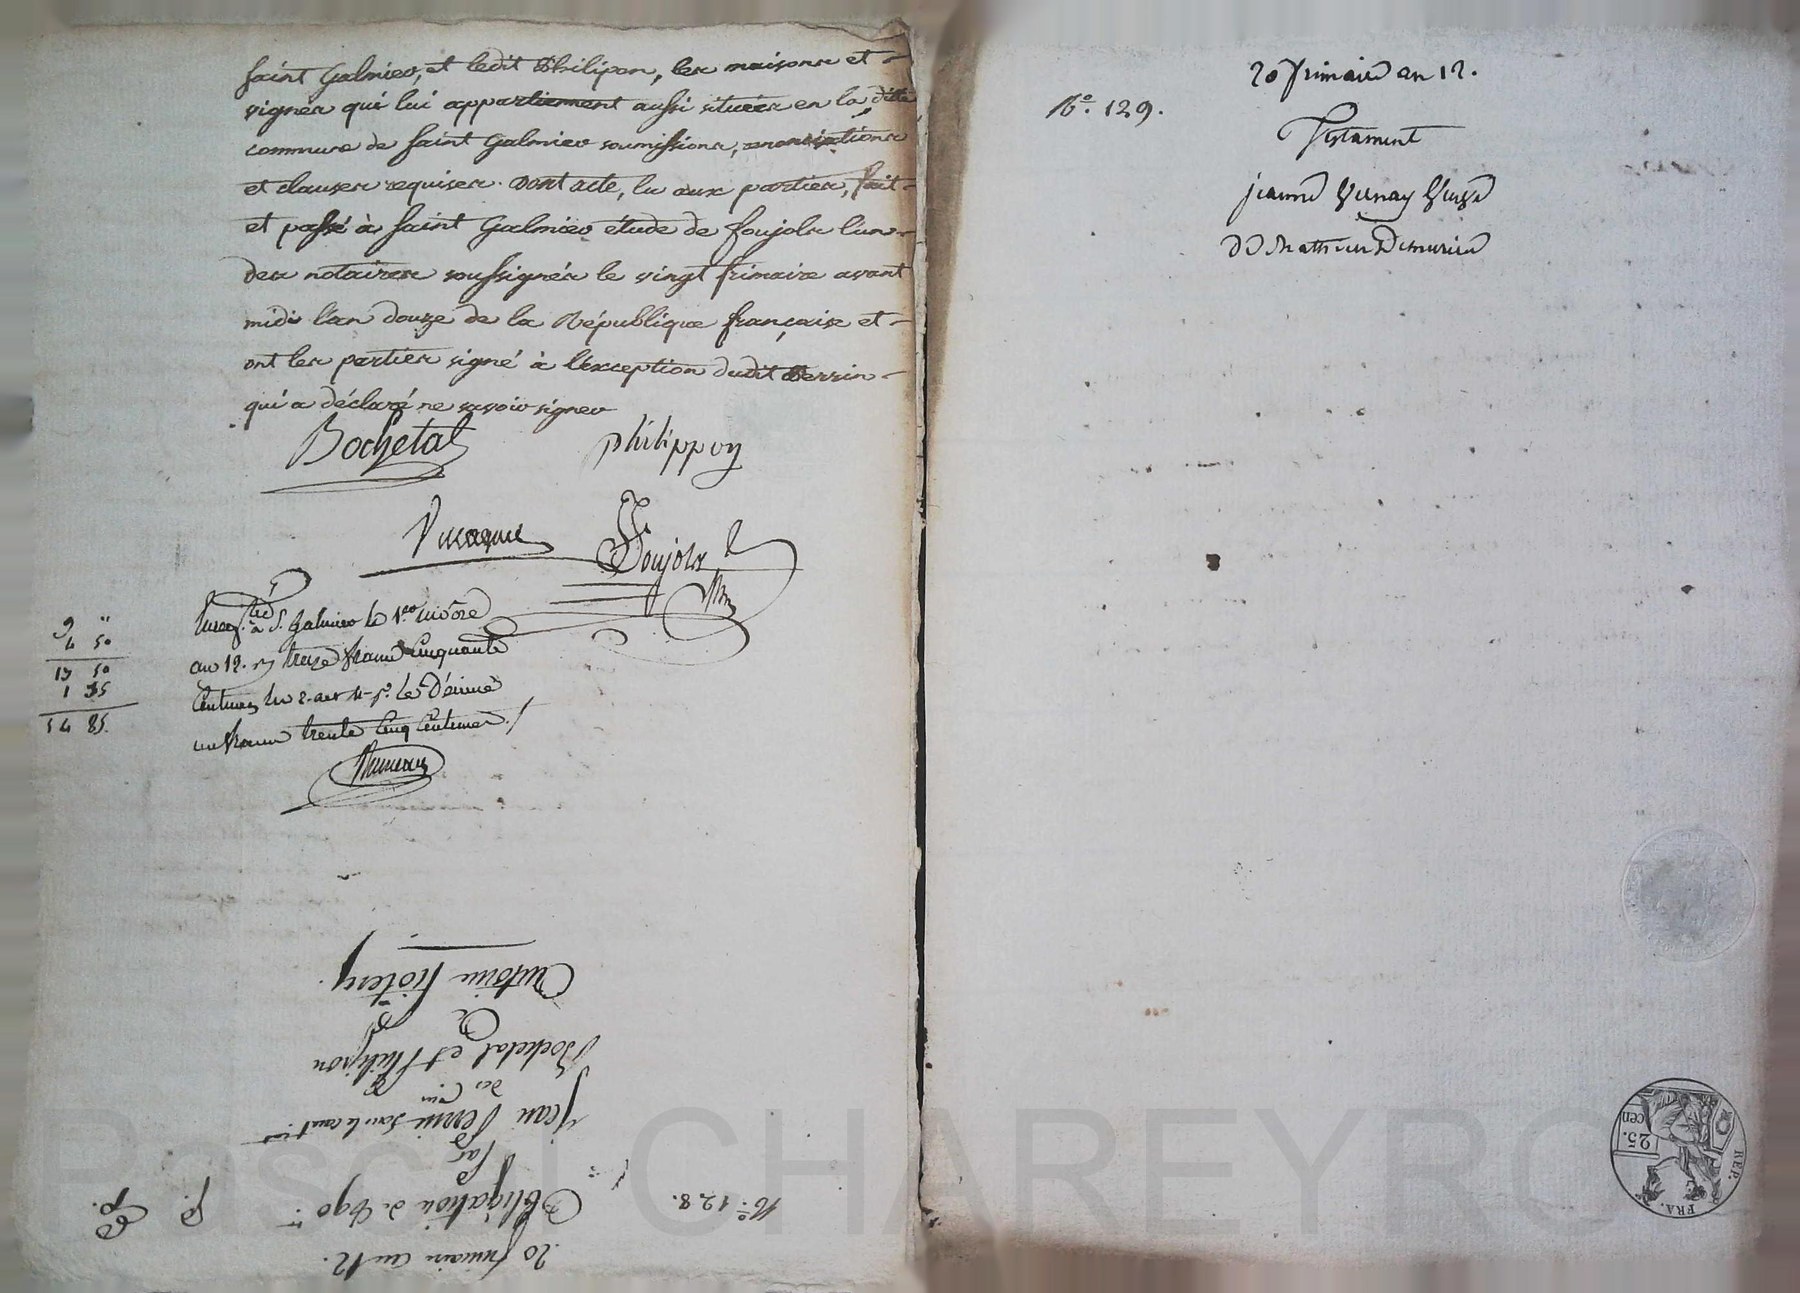 Saint Galmier, et ledit Philipon, les maisons et
vignes qui lui appartiennent aussi situées en la ditte
commune de Saint Galmier soumissions, renonciations
et clauses requises. Dont acte, lu aux parties, fait
et passé à Saint Galmier étude de foujols l'un
des notaires soussignés le vingt frimaire avant
midi l'an douze de la République française et
ont les parties signé à l'exception dudit Perrin
qui a déclaré ne savoir signer
Bochetal philippon
Foujols
à St. Galmier le 1er nivose
an 12. treize francs Cinquante
Centimes
un franc trente Cinq Centimes
9 "
4 50
13 50
1 35
14 85.
20 frimaire an 12.
No. 128.
Obligation de 890
par
Jean Perrin
des Cens
Bochetal et Philipon
a
Antoine
20 frimaire an 12.
No. 129.
Testament
jeanne Veuve
De Mathieu
REP. FRA.
25. cen
Pascal CHAREYRO